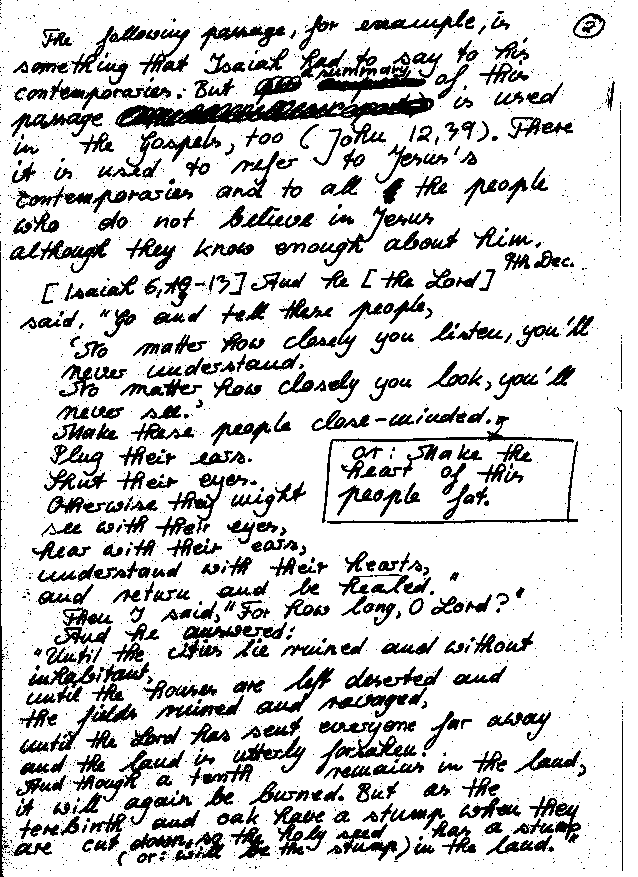 The following passage, for example, is
②
something that Isaiah had to say to his
contemporaries. But a summary of this
passage is used
in the Gospels, too (John 12,39). There
it is used to refer to Jesus's
contemporaries and to all the people
who do not believe in Jesus
although they know enough about him.
9th Dec.
[Isaiah 6,9-13] And he [the Lord]
said, "Go and tell these people,
'No matter how closely you listen, you'll
never understand.
No matter how closely you look, you'll
never see.'
Make these people close-minded.
Plug their ears.
Shut their eyes.
or: Make the
heart of this
people fat.
Otherwise they might
see with their eyes,
hear with their ears,
understand with their hearts,
and return and be healed."
Then I said, "For how long, O Lord?"
And he answered:
"Until the cities lie ruined and without
inhabitant,
until the houses are left deserted and
the fields ruined and ravaged,
until the Lord has sent everyone far away
and the land is utterly forsaken.
And though a tenth remains in the land,
it will again be burned. But as the
terebinth and oak have a stump when they
are cut down, so the holy seed has a stump
(or: will be the stump) in the land."